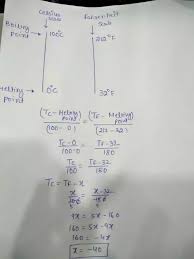 Celsius
scale
Farenheit
scale
Boiling
point
100°C
212°F
Melting
point
0°C
32°F
(Tc - Melting point) / (100 - 0) = (TF - Melting point) / (212 - 32)
Tc - 0 / 100 - 0 = TF - 32 / 180
Tc / 100 = TF - 32 / 180
Tc = TF = x
x / 100 = x - 32 / 180
5 9
9x = 5x - 160
160 = 5x - 9x
160 = -4x
x = -40